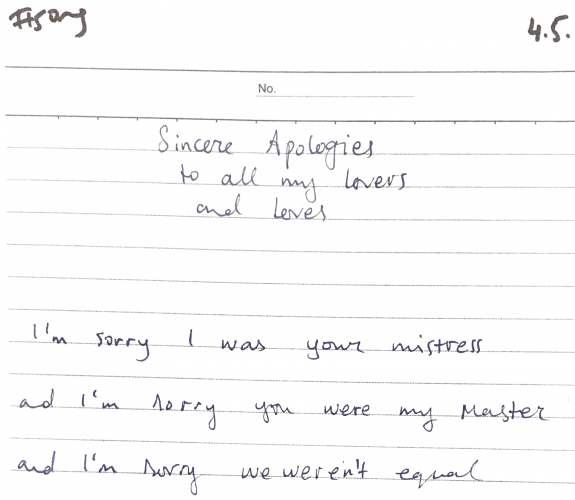 #song
4.5.
No.
Sincere Apologies
to all my lovers
and loves
I'm sorry I was your mistress
ad I'm sorry you were my Master
and I'm sorry we weren't equal